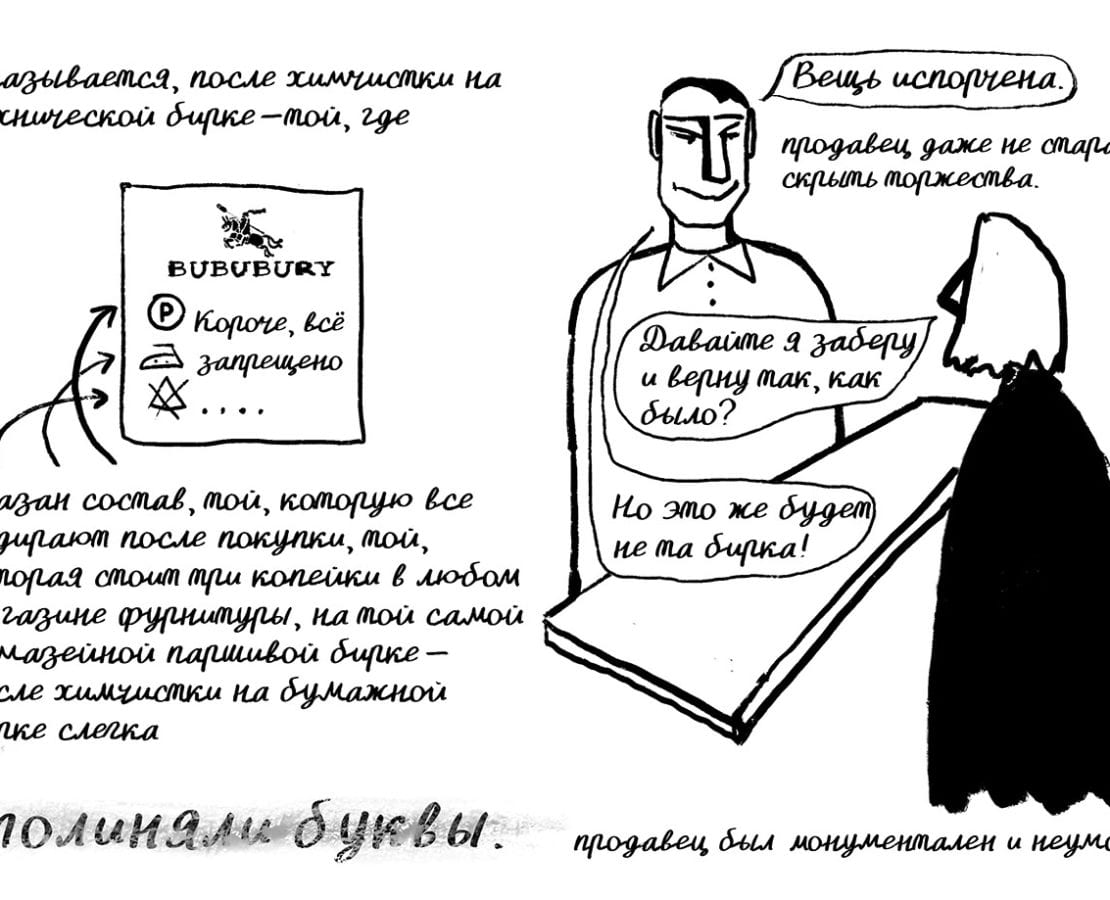 азывается, после химчистки на
хнической бирке – той, где
BUBUBURY
P Короче, всё
запрещено
....
азан состав, той, которую все
дирают после покупки, той,
торая стоит три копейки в любом
газине фурнитуры, на той самой
мазейной паршивой бирке –
сле химчистки на бумажной
рке слегка
полиняли буквы.
Вещь испорчена.
продавец даже не стара
скрыть торжества.
Давайте я заберу
и верну так, как
было?
Но это же будет
не та бирка!
продавец был монументален и неумо